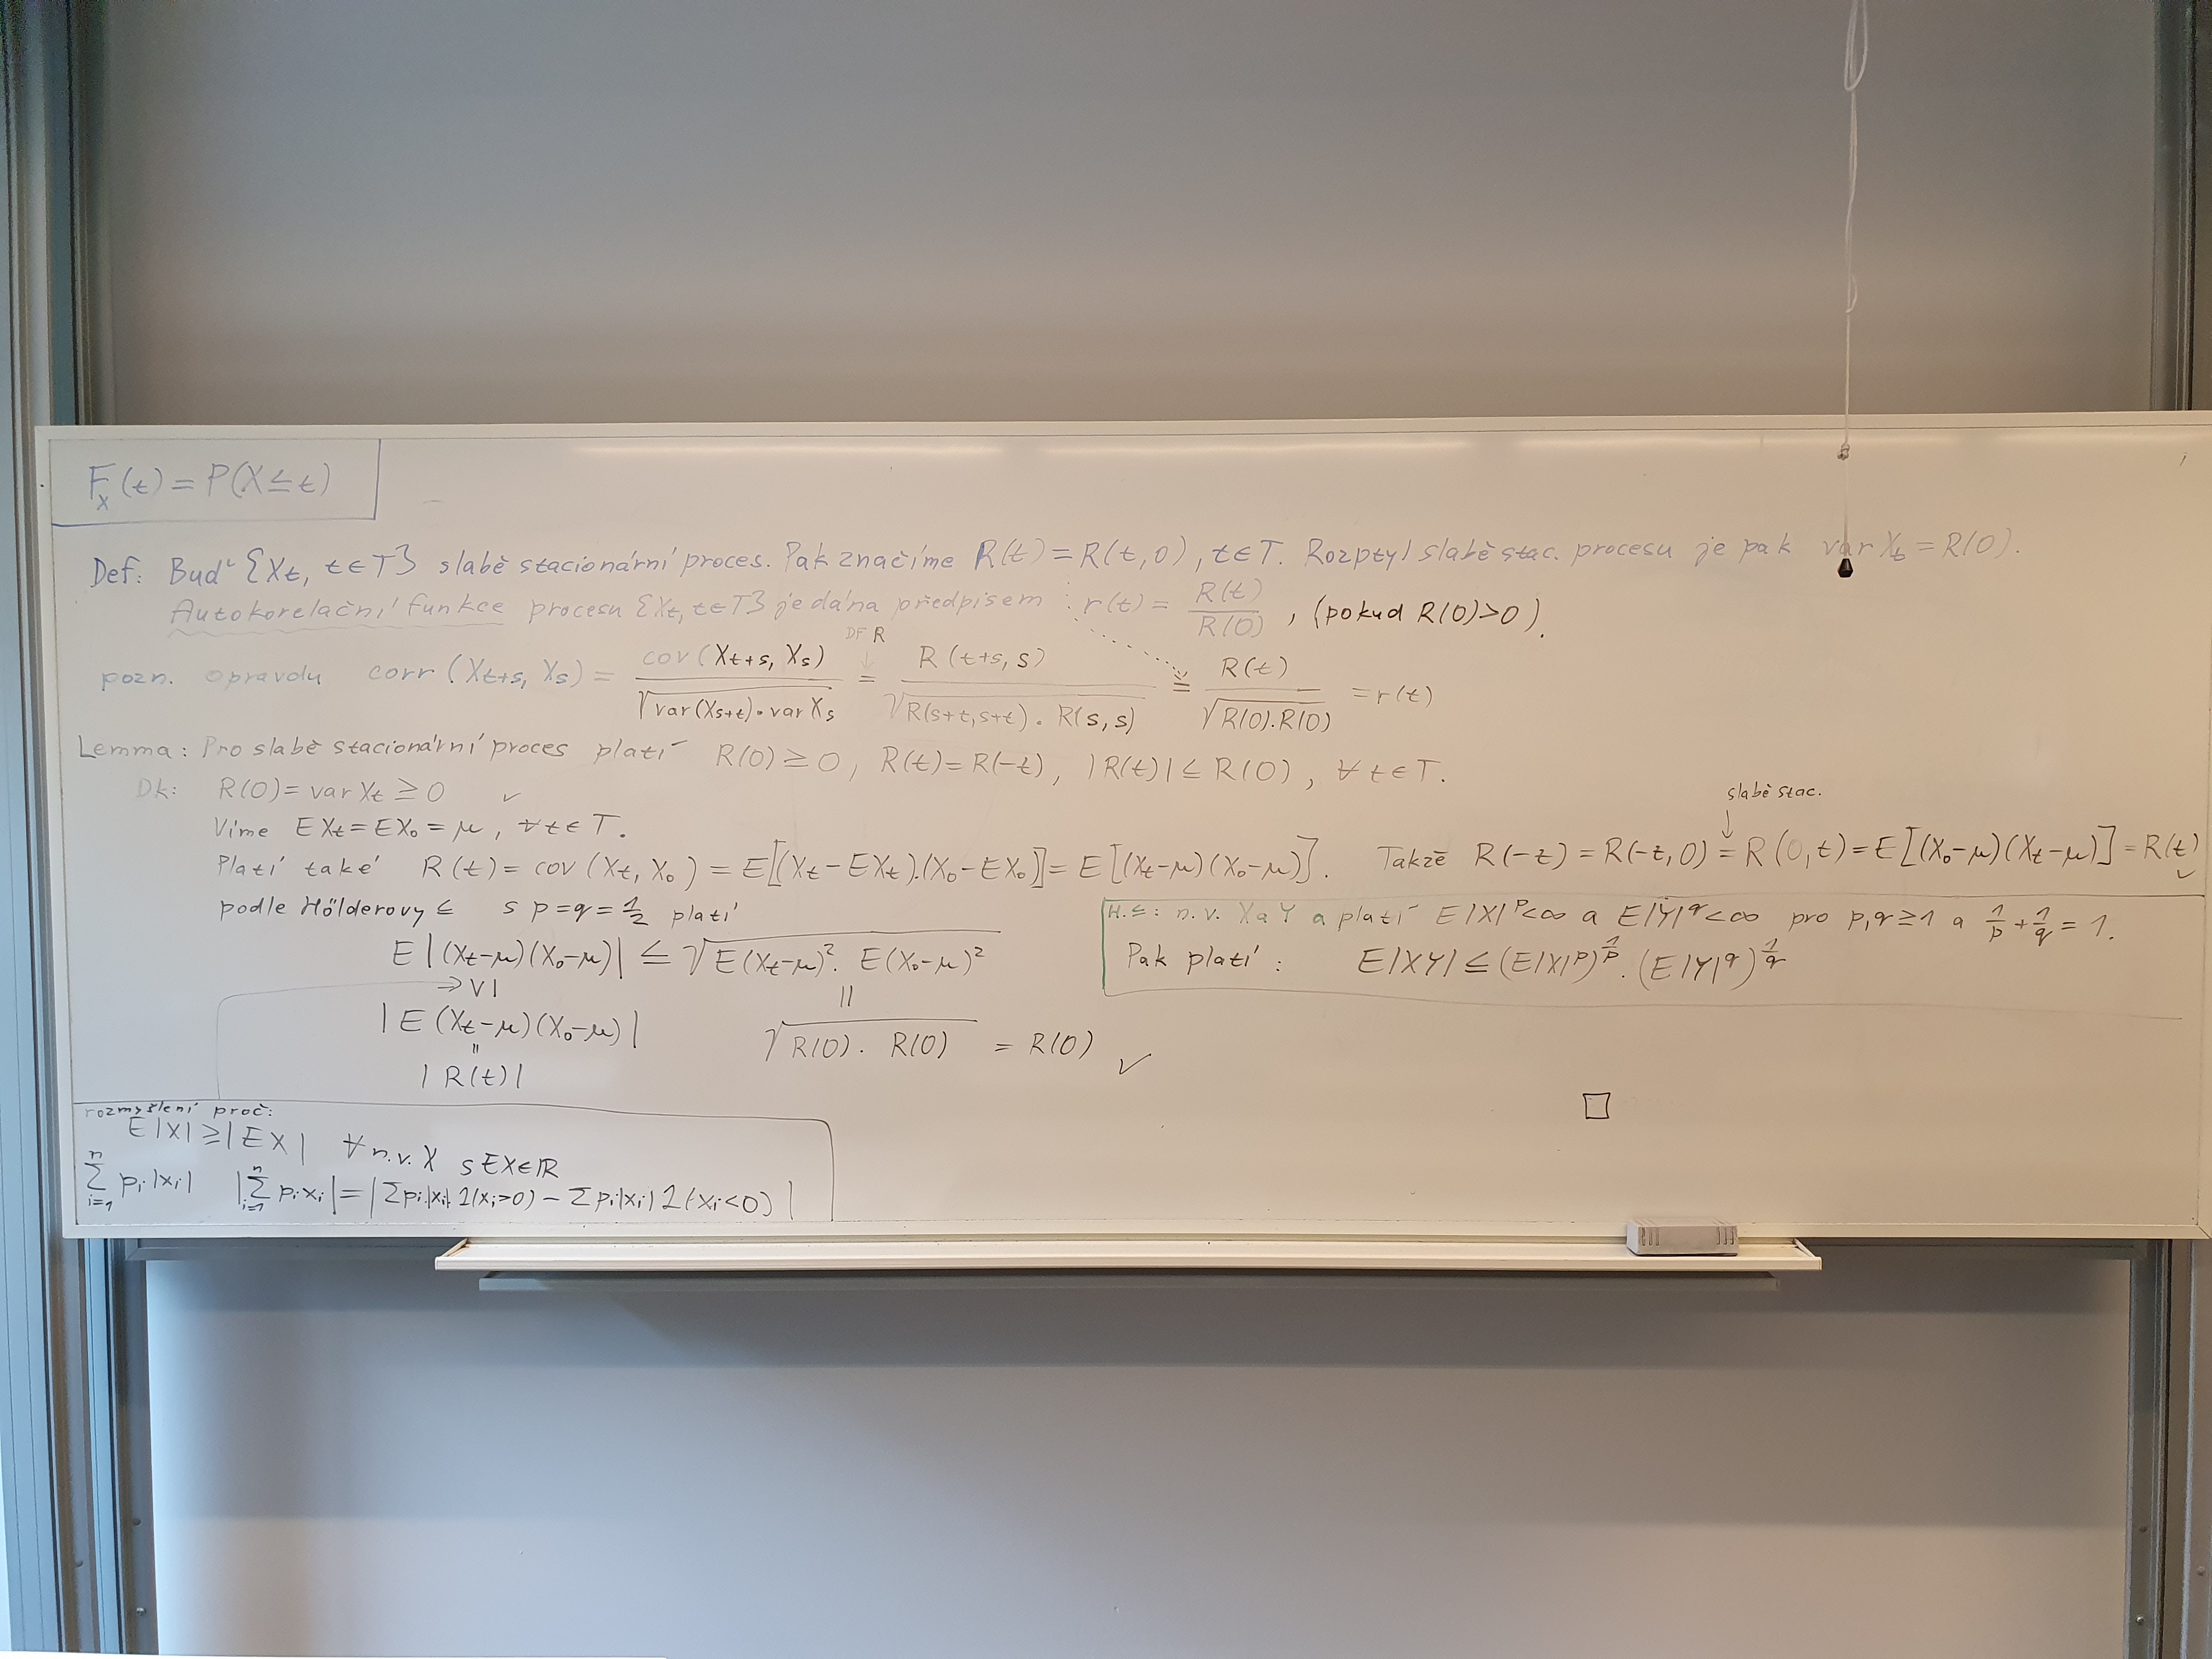 F_X(t) = P(X ≤ t)
Def: Buď {X_t, t∈T} slabě stacionární proces. Pak značíme R(t) = R(t,0), t∈T. Rozptyl slabě stac. procesu je pak var X_t = R(0).
Autokorelační funkce procesu {X_t, t∈T} je dána předpisem : r(t) = R(t)/R(0), (pokud R(0)>0).
DF R
pozn. opravdu corr(X_{t+s}, X_s) = cov(X_{t+s}, X_s)/√(var(X_{s+t})·var X_s) = R(t+s,s)/√(R(s+t,s+t)·R(s,s)) = R(t)/√(R(0).R(0)) = r(t)
Lemma: Pro slabě stacionární proces platí R(0) ≥ 0, R(t)=R(-t), |R(t)| ≤ R(0), ∀t∈T.
Dk: R(0) = var X_t ≥ 0 ✓
slabě stac.
Víme EX_t = EX_0 = μ, ∀t∈T.
Platí také R(t) = cov(X_t, X_0) = E[(X_t-EX_t).(X_0-EX_0)] = E[(X_t-μ)(X_0-μ)]. Takže R(-t) = R(-t,0) = R(0,t) = E[(X_0-μ)(X_t-μ)] = R(t) ✓
podle Hölderovy ≤ s p=q=1/2 platí
E|(X_t-μ)(X_0-μ)| ≤ √(E(X_t-μ)². E(X_0-μ)²)
→ ∨| ||
|E(X_t-μ)(X_0-μ)| √(R(0). R(0)) = R(0) ✓
||
|R(t)|
H.≤: n.v. X a Y a platí E|X|^p<∞ a E|Y|^q<∞ pro p,q≥1 a 1/p + 1/q = 1.
Pak platí: E|XY| ≤ (E|X|^p)^{1/p}. (E|Y|^q)^{1/q}
□
rozmyšlení proč:
E|X| ≥ |EX| ∀ n.v. X s EX∈ℝ
∑_{i=1}^n p_i|x_i| |∑_{i=1}^n p_i x_i| = |∑p_i|x_i| 1(x_i>0) − ∑p_i|x_i| 1(x_i<0)|